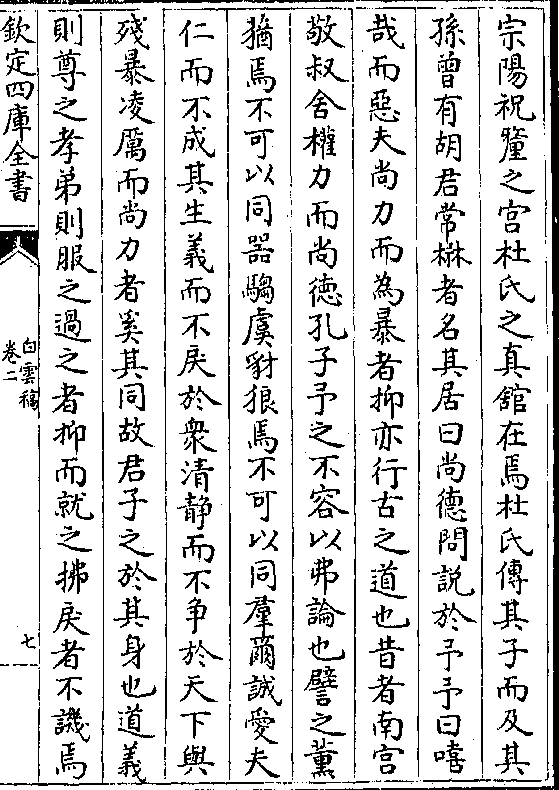 宗陽祝釐之宫杜氏之真舘在焉杜氏傳其子而及其
孫曾有胡君常楙者名其居曰尚德問説於予予曰嘻
哉而惡夫尚力而為暴者抑亦行古之道也昔者南宫
敬叔舍權力而尚徳孔子予之不容以弗論也譬之薰
蕕焉不可以同器騶虞豺狼焉不可以同羣薾誠愛夫
仁而不成其生義而不戾於衆清静而不争於天下與
殘暴凌厲而尚力者奚其同故君子之於其身也道義
則尊之孝弟則服之過之者抑而就之拂戾者不譏焉
欽定四庫全書
白雲稿
卷二
七